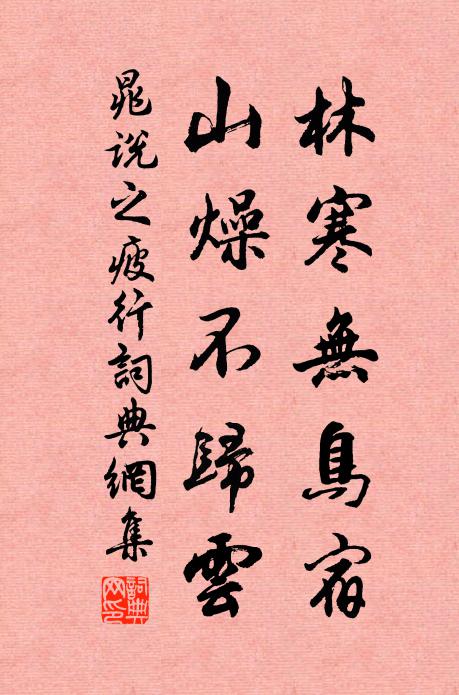 林寒無鳥宿
山燥不歸雲
晁說之疲行詞典網集
詞典網印